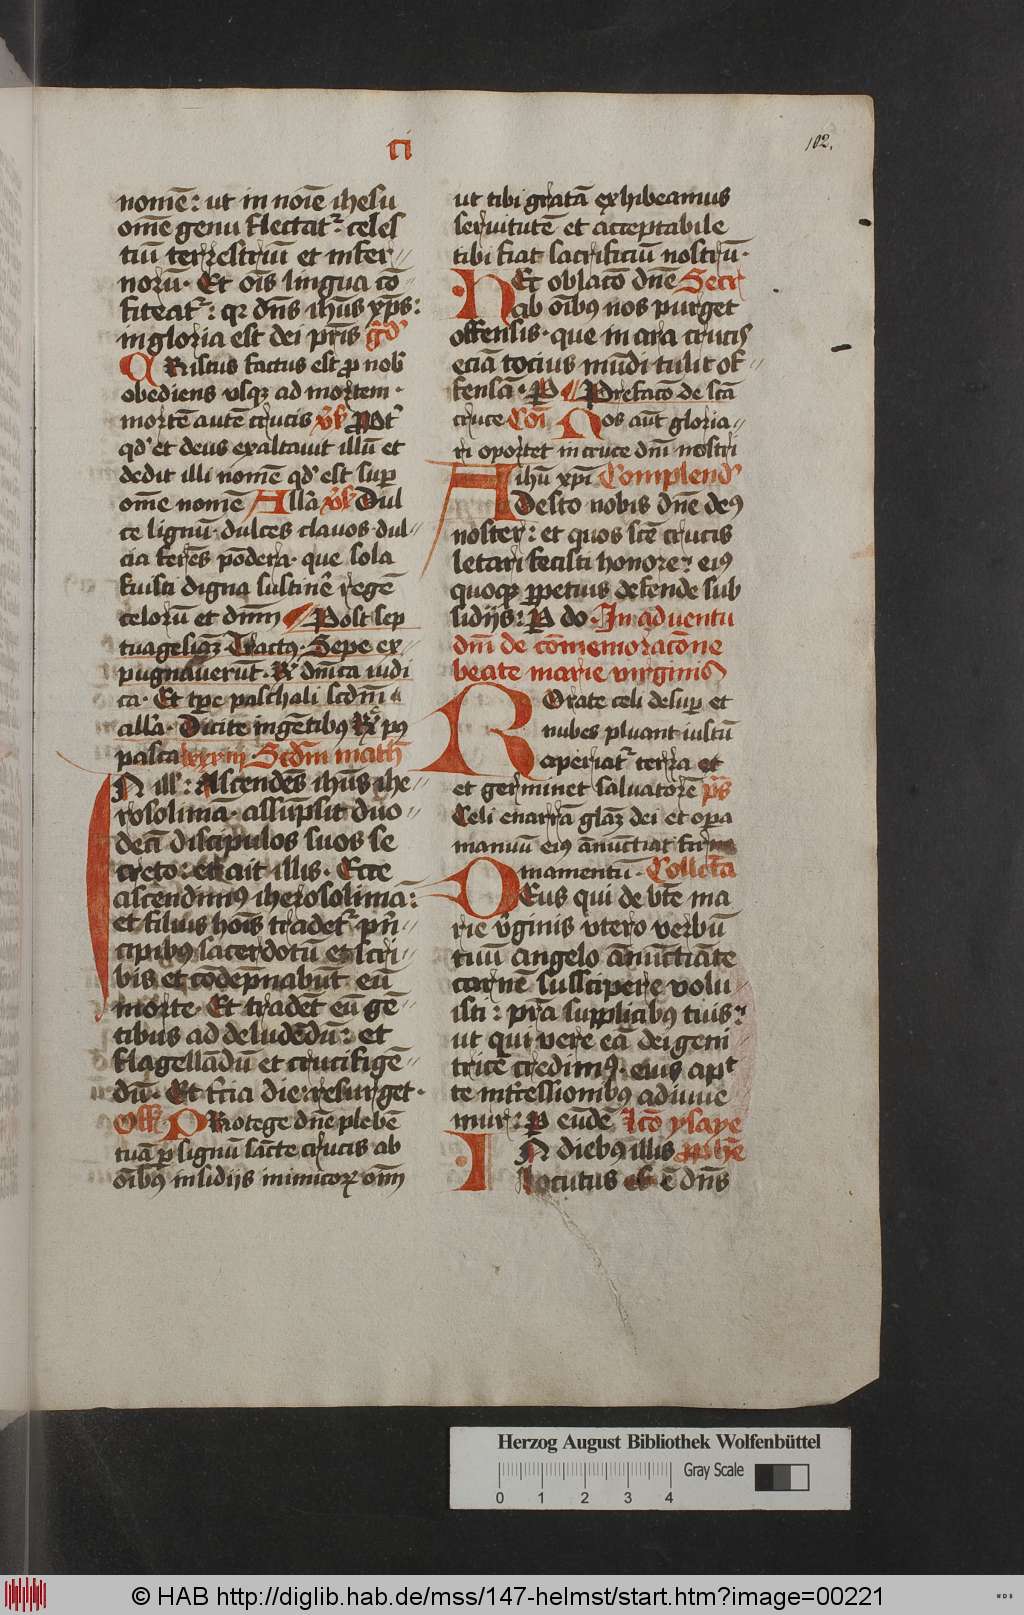 ci
102.
nomē: ut in noīe ihesu
om̄e genu flectatᷣ celes
tiū terrestriū et infer-
norū· Et oīs lingua cō
fiteatᷣ: qꝛ dn̄s ihūs xp̄s:
in gloria est dei pr̄is gͣdͣ
Ristus factus est ꝓ nob̄
obediens usqꝫ ad mortem·
mortē autē crucis v̄s Ppt̄
qđ et deus exaltauit illū et
dedit illi nomē qđ est suꝑ
om̄e nomē Alla v̄s Dul
ce lignū· dulces clauos· dul-
cia ferēs pōdera· que sola
fuisti digna sustinē regē
celorū et dn̄m Post sep
tuagesiꝫ· Tractꝯ· Sepe ex
pugnauerūt· ℞ dn̄ica iudi
ca· Et tꝑe paschali scdm̄
all̄a· Dicite in gētibꝯ ℞ pꝯ
pasca Scdm̄ math̄
N ill̄: Ascendēs ihūs ihe-
rosolimā· assūpsit duo-
deci discipulos suos se
creto: et ait illis· Ecce
ascendimꝯ iherosolimā:
et filius hoīs tradetᷣ prī-
cipibꝯ sacerdotū et scri-
bis et cōdēpnabūt eū
morte· Et tradēt eū gē-
tibus ad deludēdū: et
flagellādū et crucifigē-
dū· Et t̄cia die resurget·
Off̄ PRotege dn̄e plebē
tuā ꝑ signū sācte crucis ab
oībꝯ insidijs inimicoꝝ om̄
ut tibi gratā exhibeamus
seruitutē et acceptabile
tibi fiat sacrificiū nostrū·
HEc oblacō dn̄e Secr̄
ab oībꝯ nos purget
offensis· que in ara crucis
eciā tocius mūdi tulit of-
fensā· P Prefacō de scā
cruce Cōi Nos aūt gloria-
ri oportet in cruce dn̄i nostri
ihū xp̄i Complend̄
ADesto nobis dn̄e deꝯ
noster: et quos scē crucis
letari fecisti honore: eiꝯ
quoqꝫ ꝑpetuis defende sub
sidijs: P do· In aduentu
dn̄i de cōmemoracōne
beate marie virginis
ROrate celi desuꝑ et
nubes pluant iustū
aperiatᷣ terra et
et germinet saluatorē p̄s
Celi enarrā glāꝫ dei et oꝑa
manuū eiꝯ ānūctiat firma
mamentū· Collcā
DEus qui de btē ma
rie v̄ginis vtero verbū
tuū angelo ānūctiāte
carnē suscipere volu
isti: pr̄a supplicibꝯ tuis:
ut qui vere eā dei geni
tricē credimꝯ· eius apᵗ
te int̄cessionibꝯ adiuue
mur: P eūdē Lcō ysaye
IN diebꝯ illis ꝓphē
Locutus ē dn̄s
Herzog August Bibliothek Wolfenbüttel
Gray Scale
0 1 2 3 4
© HAB http://diglib.hab.de/mss/147-helmst/start.htm?image=00221